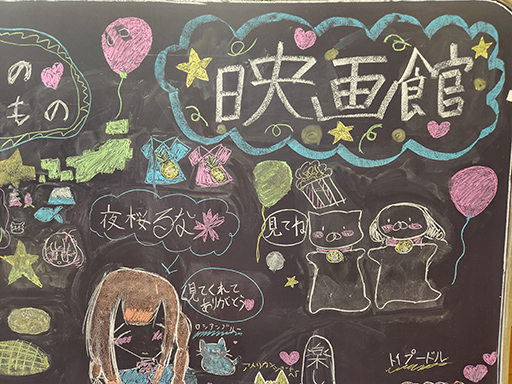 のもの
映画館
夜桜るな
見てね
見てくれて
ありがとう
ロシアンブルー
アメリカンショート
楽
トイプードル